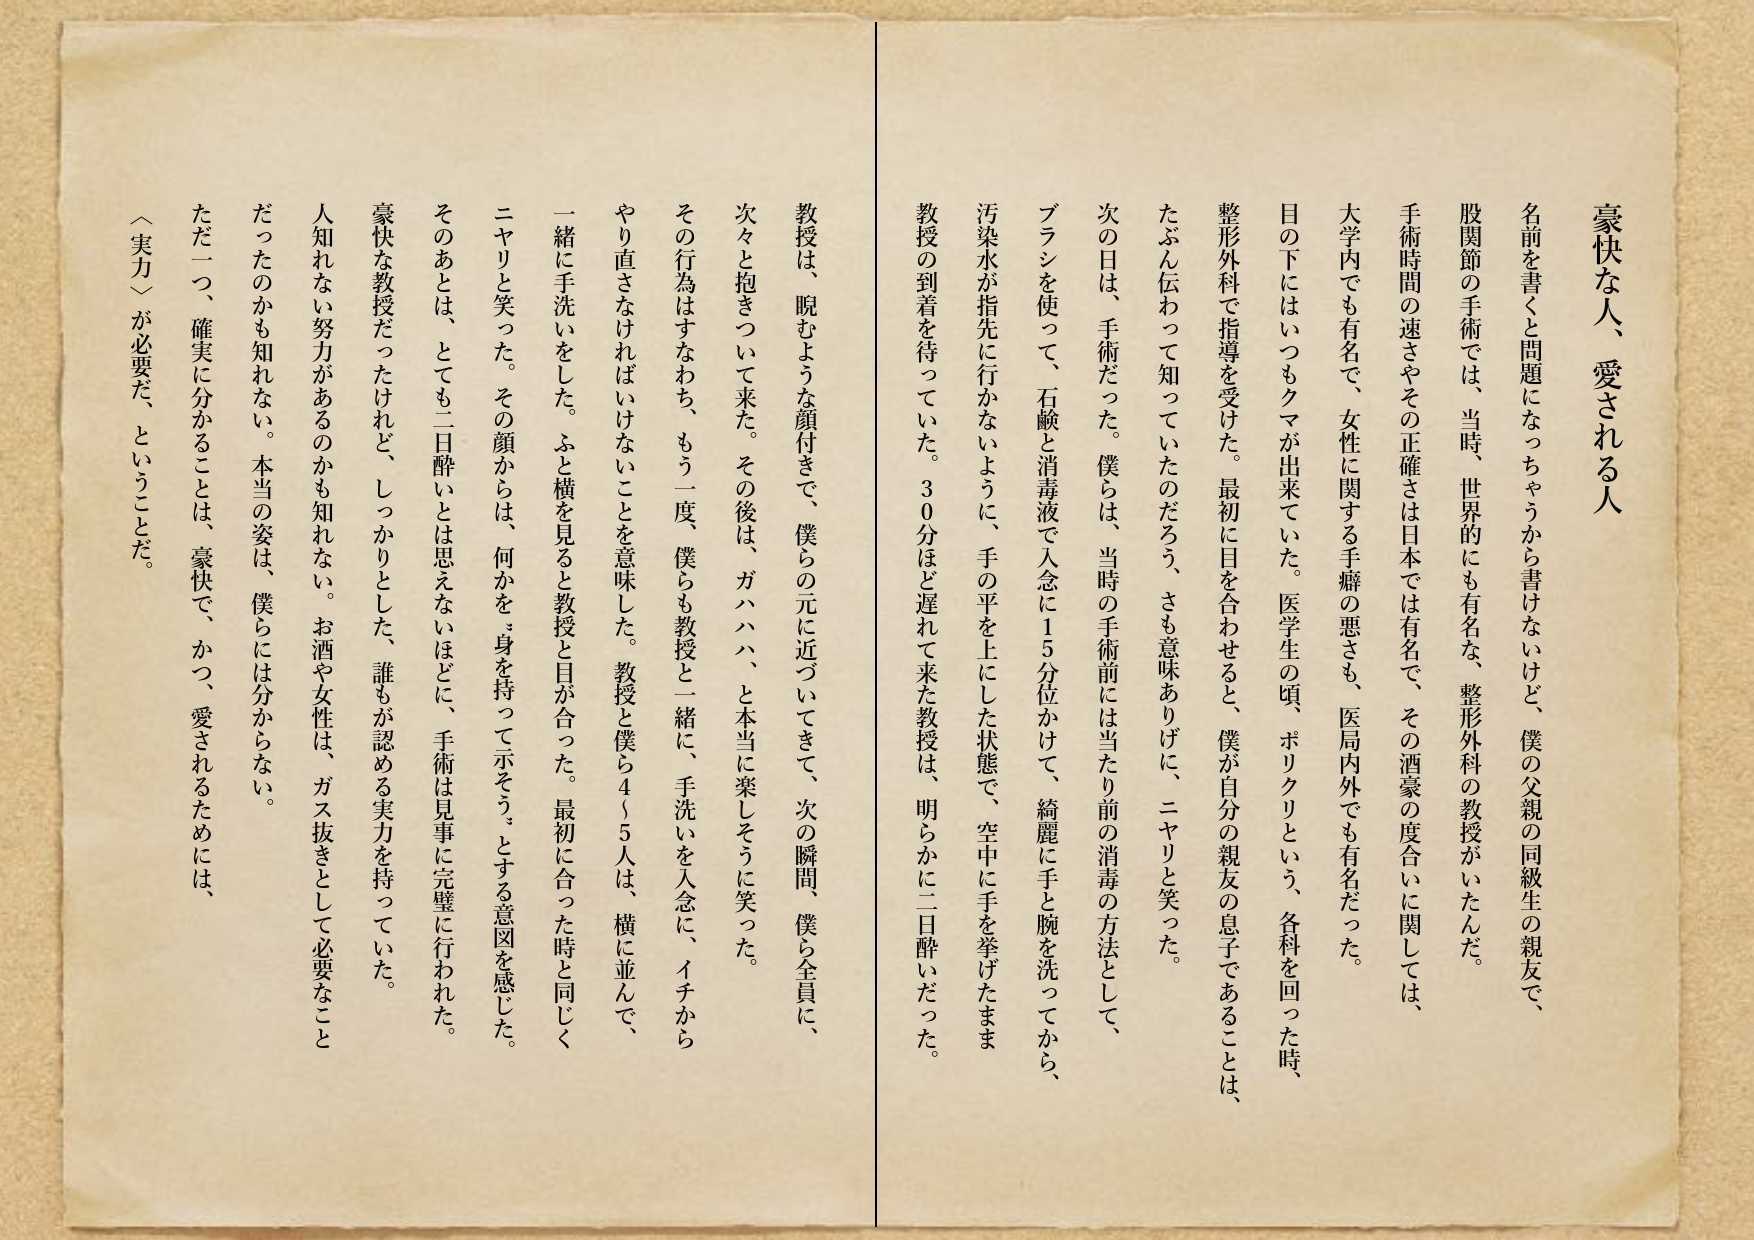 豪快な人、愛される人
名前を書くと問題になっちゃうから書けないけど、僕の父親の同級生の親友で、
股関節の手術では、当時、世界的にも有名な、整形外科の教授がいたんだ。
手術時間の速さやその正確さは日本では有名で、その酒豪の度合いに関しては、
大学内でも有名で、女性に関する手癖の悪さも、医局内外でも有名だった。
目の下にはいつもクマが出来ていた。医学生の頃、ポリクリという、各科を回った時、
整形外科で指導を受けた。最初に目を合わせると、僕が自分の親友の息子であることは、
たぶん伝わって知っていたのだろう、さも意味ありげに、ニヤリと笑った。
次の日は、手術だった。僕らは、当時の手術前には当たり前の消毒の方法として、
ブラシを使って、石鹸と消毒液で入念に15分位かけて、綺麗に手と腕を洗ってから、
汚染水が指先に行かないように、手の平を上にした状態で、空中に手を挙げたまま
教授の到着を待っていた。30分ほど遅れて来た教授は、明らかに二日酔いだった。
教授は、睨むような顔付きで、僕らの元に近づいてきて、次の瞬間、僕ら全員に、
次々と抱きついて来た。その後は、ガハハハ、と本当に楽しそうに笑った。
その行為はすなわち、もう一度、僕らも教授と一緒に、手洗いを入念に、イチから
やり直さなければいけないことを意味した。教授と僕ら4〜5人は、横に並んで、
一緒に手洗いをした。ふと横を見ると教授と目が合った。最初に合った時と同じく
ニヤリと笑った。その顔からは、何かを〝身を持って示そう〟とする意図を感じた。
そのあとは、とても二日酔いとは思えないほどに、手術は見事に完璧に行われた。
豪快な教授だったけれど、しっかりとした、誰もが認める実力を持っていた。
人知れない努力があるのかも知れない。お酒や女性は、ガス抜きとして必要なこと
だったのかも知れない。本当の姿は、僕らには分からない。
ただ一つ、確実に分かることは、豪快で、かつ、愛されるためには、
〈実力〉が必要だ、ということだ。